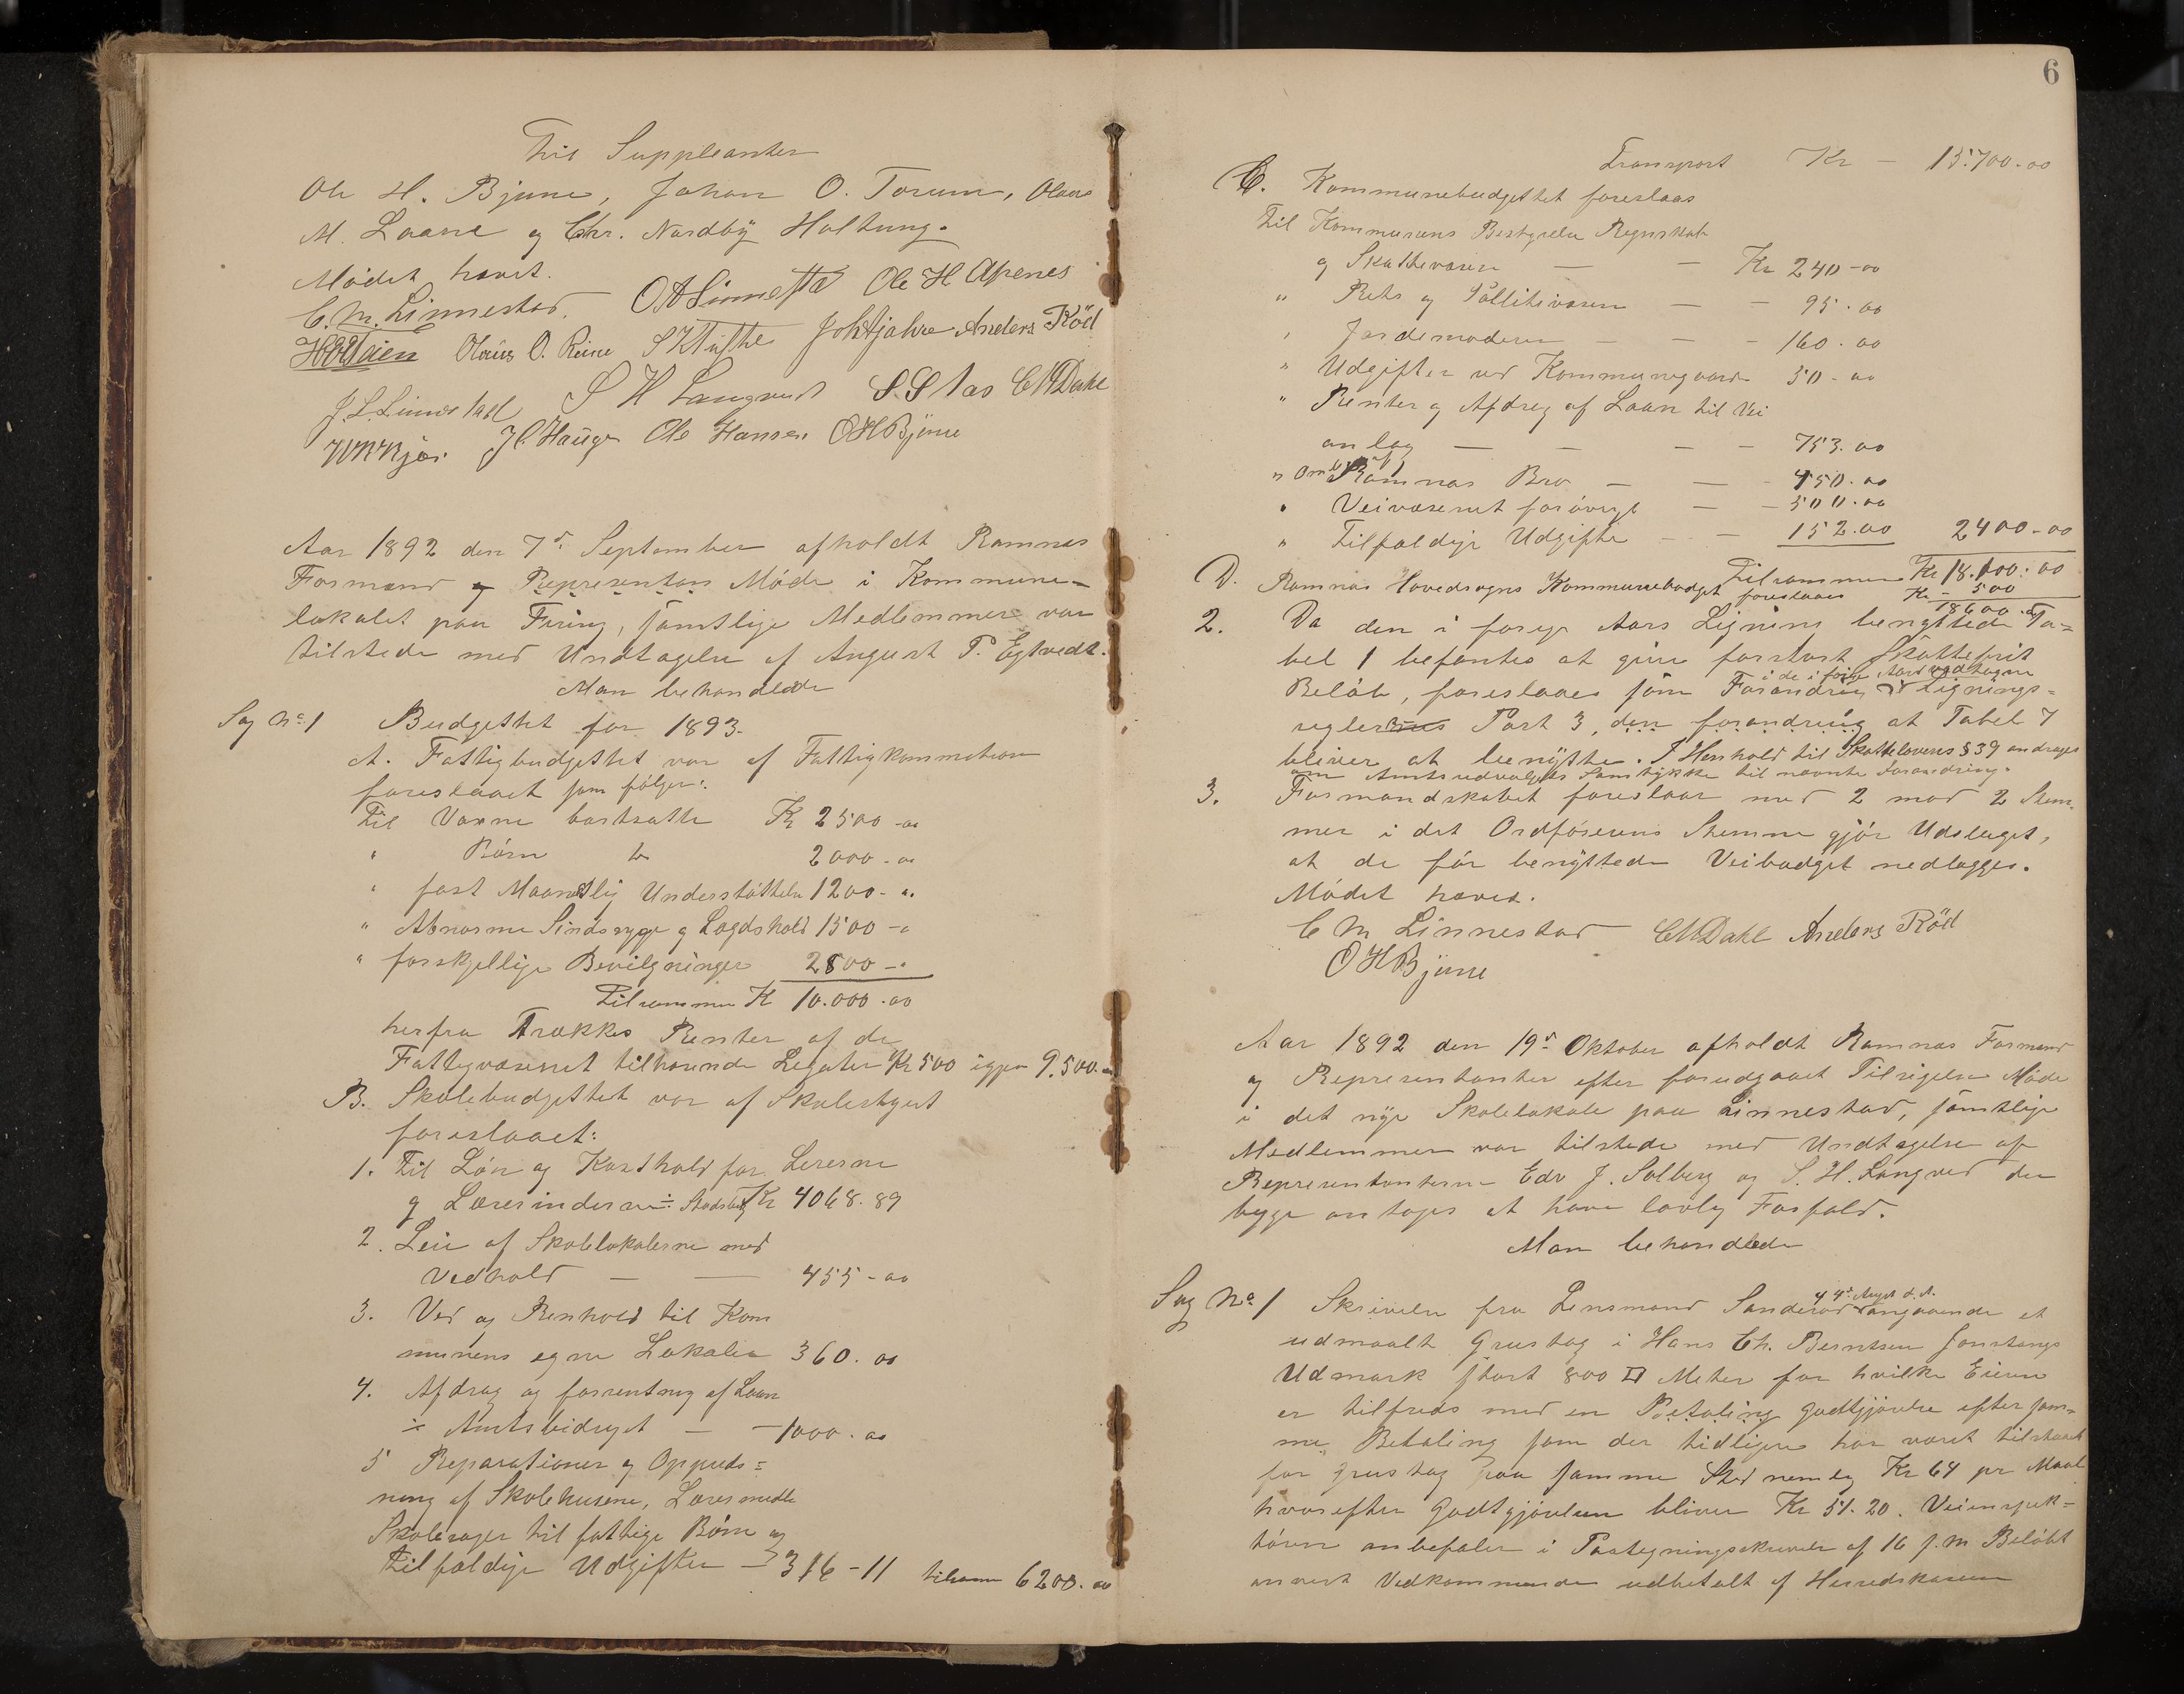 Til Suppleanter
Ole H. Bjune, Johan O. Torum, Olaus
M. Laane og Chr. Nordby Holtung.
Mödet hævet.
C. M. Linnestad. Ole H Apenes
Olaüs O. Reine Anders Röd
J. L. Linnestad S H Langved C M Dahl
J. Hauge Ole Hansen O H Bjüne
Aar 1892 den 7de September afholdt Ramnes
Formænd og Representan Möde i Kommune-
lokalet paa Firing, samtlige Medlemmer var
tilstede med Undtagelse af August P. Egtvedt.
Man behandlede
Sag No. 1 Budgettet for 1893.
A. Fattigbudgettet var af Fattigkommetionen
foreslaaet som fölger:
Til Voxne bortsatte Kr 2500-00
" Börn do 2000-00
" fast Maanedlig Understöttelse 1200-"
" Abnorme Sindssyge og Lægdshold 1500-"
" forskjellige Bevilgninger 2800-"
Tilsammen Kr 10.000.00
herfra Trækkes Renter af de
Fattigvæsenet tilhørende Legater Kr 500 igjen 9.500.00
B. Skolebudgettet var af Skolestyret
foreslaaet:
1. Til Lön og Kosthold for Lererne
og Lærerinderne ÷ Stadsbidrg Kr 4068.89
2. Leie af Skolelokalerne med
Vedhold — — 455-00
3. Ved og Renhold til Kom
munens egne Lokaler 360.00
4. Afdrag og forrentning af Laan
÷ Amtsbidraget — — 1000.00
5 Reparationer og Oppuds=
ning af Skolehusene, Læremidle
Skolesager til fattige Börn og
tilfældige Udgifter — 316-11 tilsam 6200.00
6
Transport Kr - 15.700.00
C. Kommunebudgettet foreslaas
Til Kommunens Bestyrelse Regnskab
og Skattevæsen — — Kr 240-00
" Rets og Pollitivæsen — — 95.00
" Jordemoderen — — — 160.00
" Udgifter ved Kommunegaard 50-00
" Renter og Afdrag af Laan til Vei
anlæg — — — — 753.00
" Omb Ramnas Bro — — 450.00
" Veivæsenet forövrigt — — 500.00
" Tilfældige Udgifter — — 152.00 2400-00
Tilsammen Kr 18.100:00
D. Ramnas Hovedsogns Kommunebudget foreslaaes Kr - 500
18600.00
2. Da den i forige Aars Ligning benyttede Ta=
bel 1 befantes at give forstort Skattefrit
i de i forige Aars vedtagne
Belöb, foreslaaes som Forandring Lignings=
regler Post 3, den forandring at Tabel 7
bliver at benytte. I Henhold til Skattelovens § 39 andrages
om Amtsudvalgets Samtykke til nævnte Forandring.
3. Formandskabet foreslaar med 2 mod 2 Stem-
mer i det Ordförerens Stemme gjör Udslaget,
at de för benyttede Veibudget nedlægges.
Mödet hæves.
C M Linnestad C M Dahl Anders Röd
O H Bjüne
Aar 1892 den 19de Oktober afholdt Ramnas Formænd
og Representanter efter forudgaaet Tilsigelse Möde
i det nye Skolelokale paa Linnestad, samtlige
Medlemmer var tilstede med Undtagelse af
Representanterne Edv J. Solberg og S. H. Langved der
begge antages at have lovlig Forfald.
Man behandlede
Sag No. 1 Skrivelse fra Lensmand Sanderød angaaende et
af 4de August d. A.
udmaalt Grustag i Hans Ch. Berntsen Jonstangs
Udmark stort 800 □ Meter for hvilke Eieren
er tilfreds med en Betaling godtgjörelse efter sam=
me Betaling som der tidligere har været tilstaaet
for grustag paa samme Sted nemlig Kr 64 pr Maal
hvorefter godtgjörelsen bliver Kr 51.20. Veiinspek=
tören anbefaler i Paategningsskrivelse af 16 f. m Belöbet
anvist Vedkommende udbetalt af Herredskassen